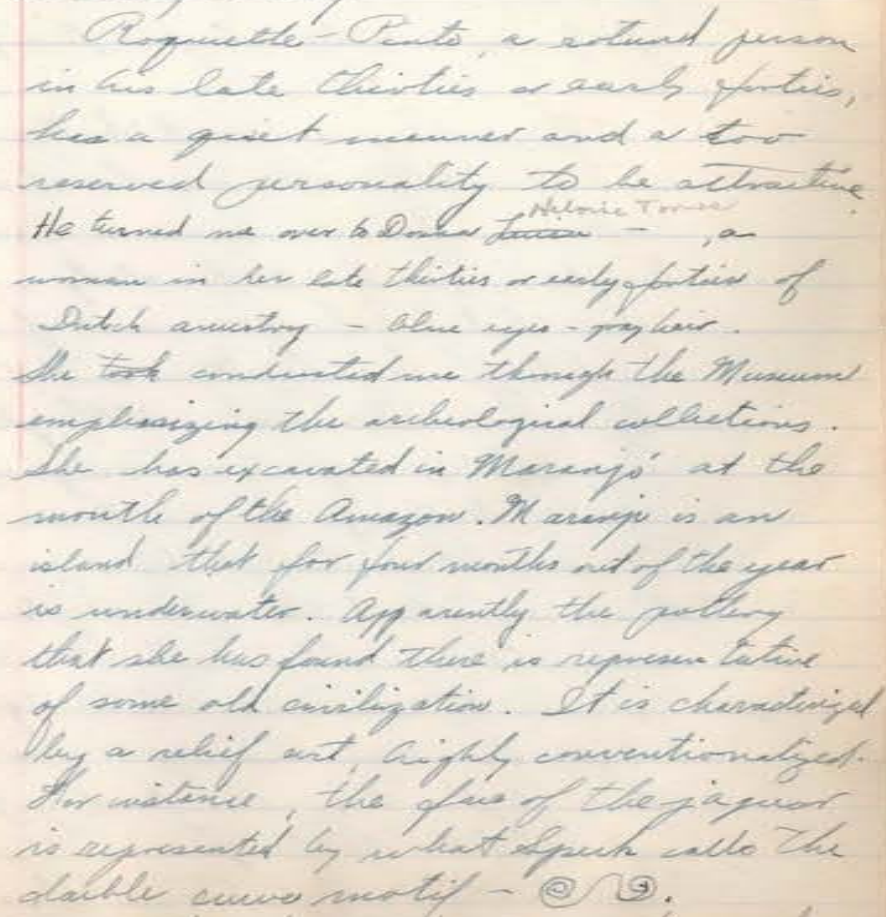 Roquette-Pinto, a rotund person
in his late thirties or early forties,
has a quiet manner and a too
reserved personality to be attractive.
Heloise Torres
He turned me over to Donna - , a
woman in her late thirties or early forties of
Dutch ancestry - blue eyes - gray hair.
She took conducted me through the Museum
emphasizing the archeological collections.
She has excavated in Maranjó at the
mouth of the Amazon. Maranjo is an
island that for four months out of the year
is underwater. Apparently the pottery
that she has found there is representative
of some old civilization. It is characterized
by a relief art, highly conventionalized.
For instance, the face of the jaguar
is represented by what Speck calls the
double curve motif - .